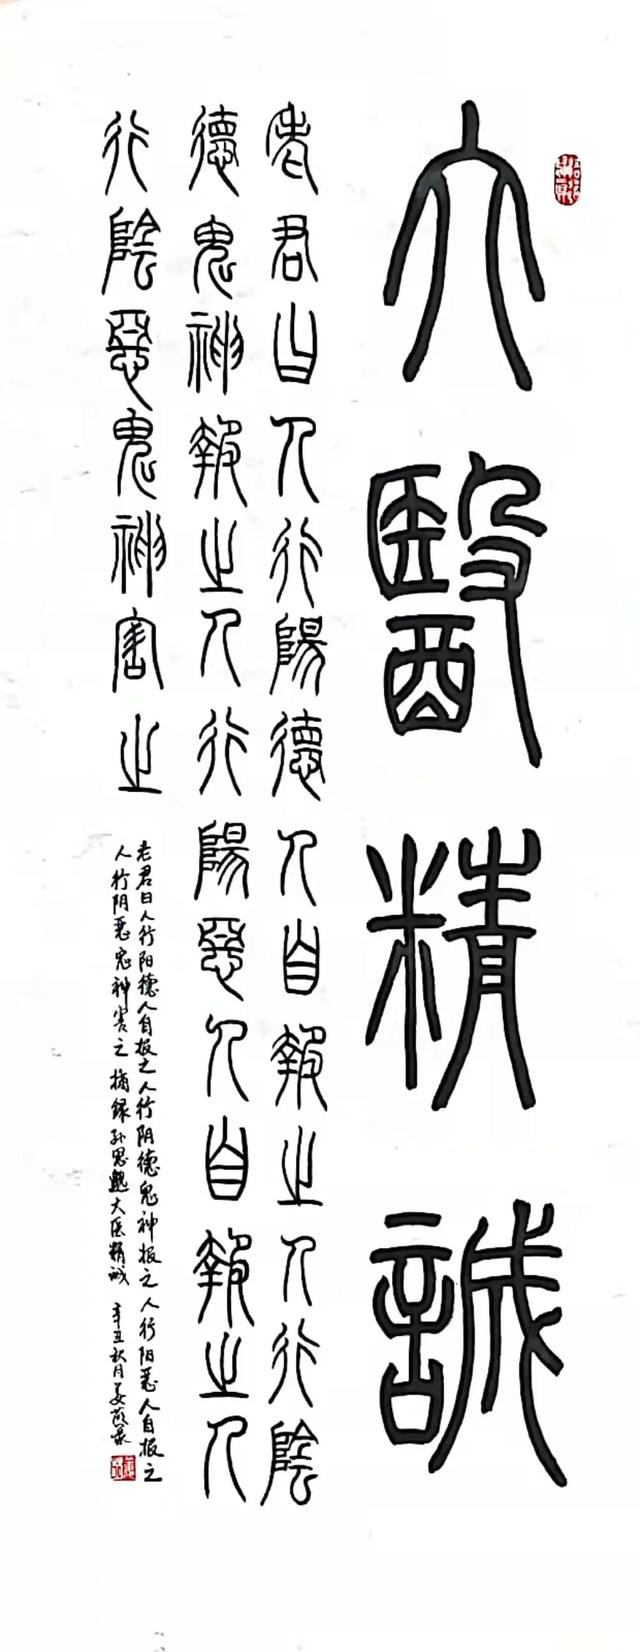 大醫精誠
老君曰人行陽德人自報之人行陰
德鬼神報之人行陽惡人自報之人
行陰惡鬼神害之
老君曰人行阳德人自报之人行阴德鬼神报之人行阳恶人自报之
人行阴恶鬼神害之摘录孙思邈大医精诚 辛丑秋月姜